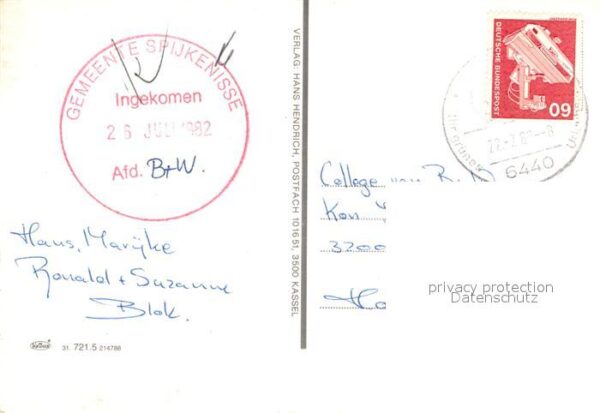 GEMEENTE SPIJKENISSE
Ingekomen
26 JULI 1982
Afd. B+W.
Hans, Marijke
Ronald + Suzanne
Blok.
31. 721.5 214788
VERLAG: HANS HENDRICH, POSTFACH 101651, 3500 KASSEL
DEUTSCHE BUNDESPOST
60
6440
College van B.
Kon
3200
Ho
privacy protection
Datenschutz